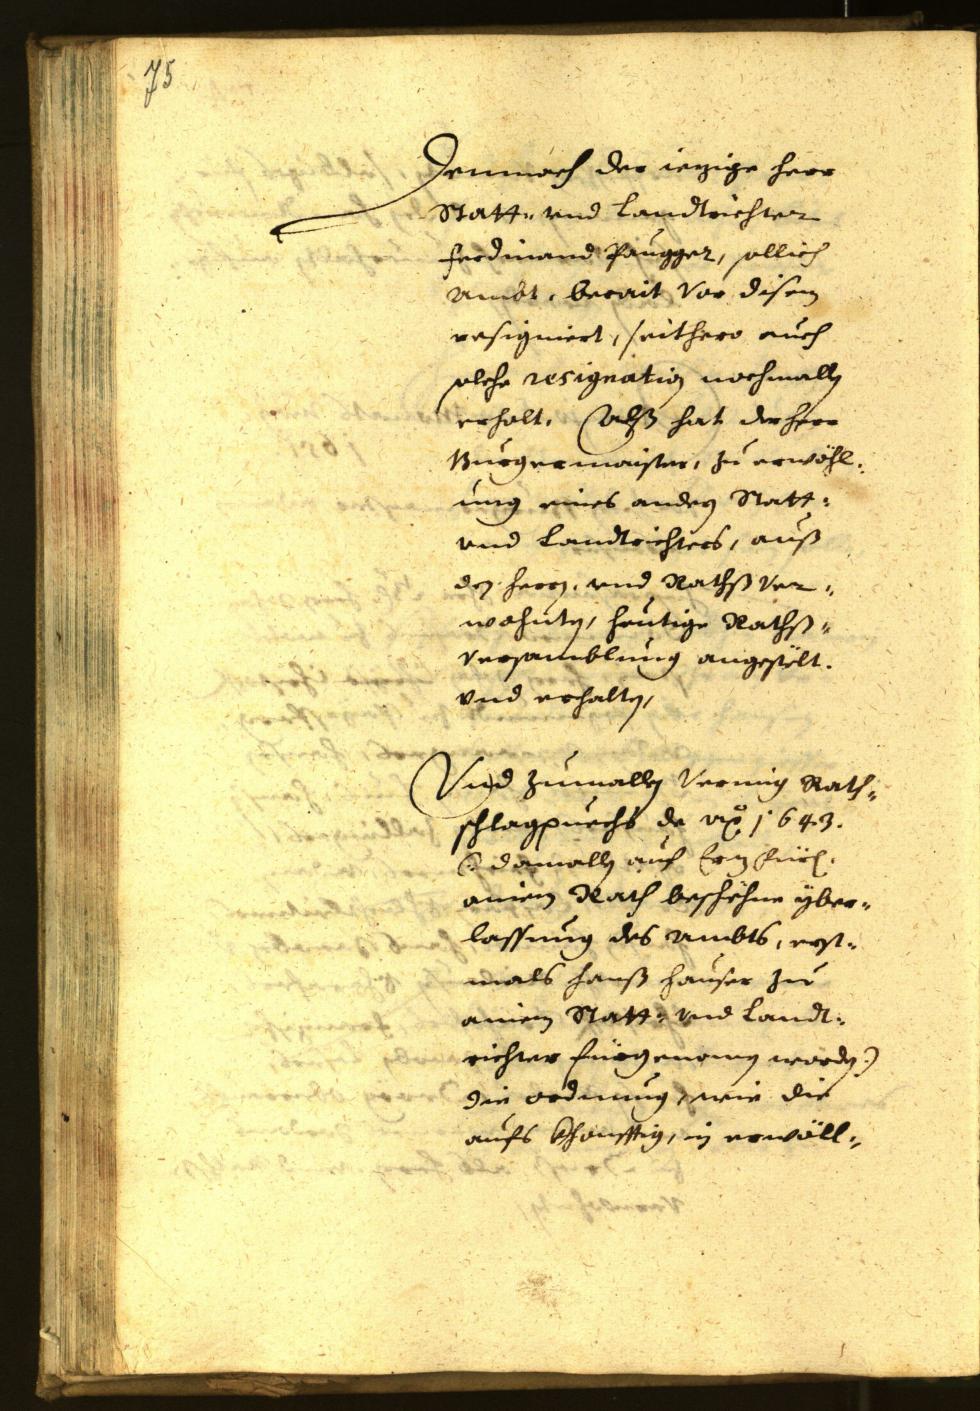 75
Demnach der iezige herr
Statt- und Landtrichter
Ferdinand Paugger, sollich
ambt, berait vor disem
resigniert, seithero auch
solche resignation nochmalln
erholt. Alß hat der herr
Burgermaister, zu erwöhl-
ung eines andern Statt-
und Landtrichters, auß
den herrn, und Rathß ver-
wohnten, heutige Rathß-
versamblung angestelt.
Und erhalten,
Und zumalln vermüg Rath-
schlagpuechs de ao 1643.
(: damalln auf
ainem Rath beschehne yber-
lassung des ambts, erst-
mals hanß hauser zu
ainem Statt- und Landt-
richter fürgenomen worden :)
die ordnung, wie die
aufs khonfftig, in erwöll-